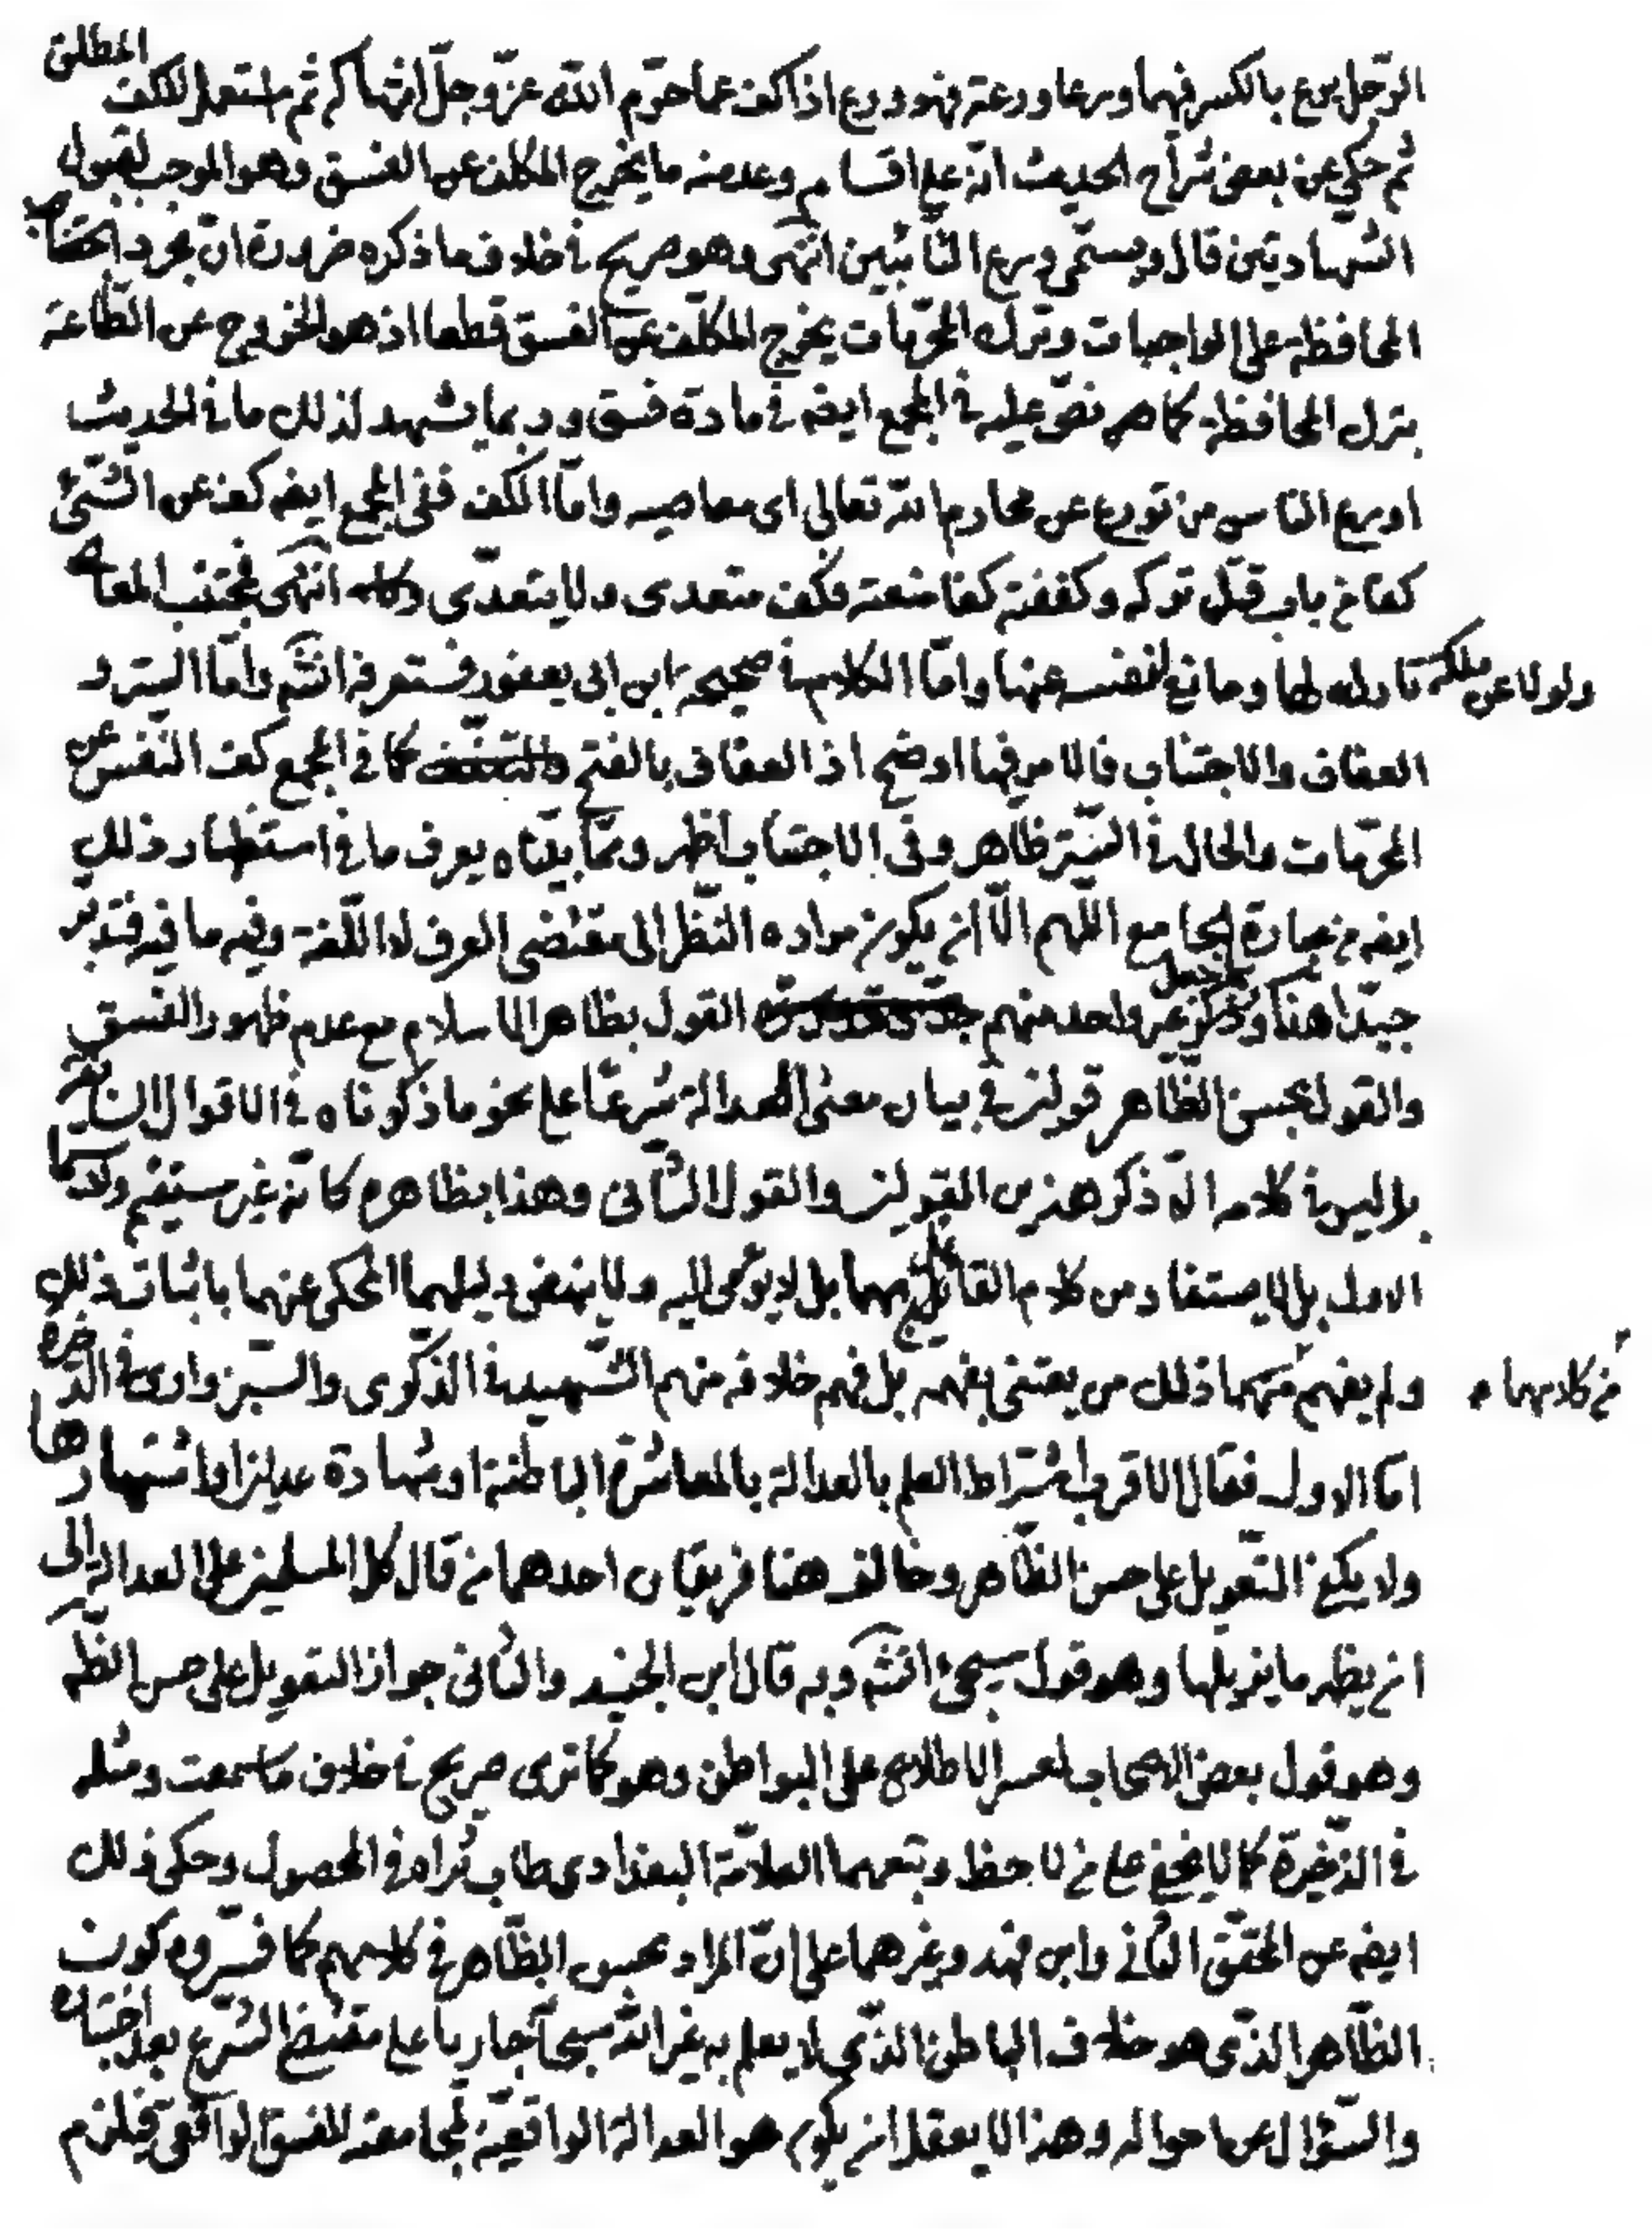 الرّجل يرع بالكسر فيهما ورعا ورعة فهو ورع اذا كف عما حرّم اللّه عزّ وجلّ انتهاكه ثم استعمل للكف المطلق
ثم حكي عن بعض شرّاح الحديث انّه على اقسام وعد منه ما يخرج المكلف عن الفسق وهو الموجب لقبول
الشهادتين قال ويسمّى ورع التّائبين انتهى وهو صريح في خلاف ما ذكره ضرورة انّ مجرد
المحافظة على الواجبات وترك المحرّمات يخرج المكلّف عن الفسق قطعا اذ هو الخروج عن الطّاعة
بترك المحافظة كما هو نصّ عليه في المجمع ايضه في مادة فسق وربما يشهد لذلك ما في الحديث
اورع الناس من تورع عن محارم اللّه تعالى اى معاصيه وامّا الكف ففى المجمع ايضه كف عن الشّئ
كفا من باب قتل تركه وكففته كفا منعته فكف متعدى ولا يتعدّى انتهى فمجتنب المعا
ولولا عن ملكة تارك لها ومانع لنفسه عنها وامّا الكلام في صحيحة ابن ابى يعفور فستعرفه انشه وامّا الستر و
العفاف والاجتناب فالامر فيها اوضح اذ العفاف بالفتح كما في المجمع كف النّفس عن
المحرّمات والحال في السّتر ظاهر وفى الاجتناب اظهر وممّا بيّناه يعرف ما في استظهار ذلك
ايضه من عبارة الجامع اللّهم الّا ان يكون مراده النّظر الى مقتضى العرف لا اللّغة وفيه ما فيه فتدبّر
جيّدا هنا وذكر غير واحد منهم جعل القول بظاهر الاسلام مع عدم ظهور الفسق
والقول بحسن الظّاهر قولين في بيان معنى العدالة شرعا على نحو ما ذكرناه في الاقوال
بل ليس في كلامه الّا ذكر هذين القولين والقول الثّانى وهذا بظاهره كانّه غير مستقيم
الاول بل لا يستفاد من كلام القائلين بهما بل لا يومى اليه ولا ينهض دليلهما المحكى عنهما باثبات ذلك
ولم يفهم منهما ذلك من يعتنى بفهمه بل فهم خلافه منهم الشّهيد في الذّكرى والسّبزوارى في الذّخيرة
من كلامهما
امّا الاول فقال الاقرب اشتراط العلم بالعدالة بالمعاشرة الباطنة او شهادة عدلين او اشتهارها
ولا يكفى التّعويل على حسن الظّاهر وخالف هنا فريقان احدهما من قال كل المسلمين على العدالة الى
ان يظهر ما يزيلها وهو قول سيجئ انشه وبه قال ابن الجنيد والثانى جواز التعويل على حسن الظّه
وهو قول بعض الاصحاب لعسر الاطلاع على البواطن وهو كما ترى صريح في خلاف ما سمعت ومثله
في الذّخيرة كما لا يخفى على من لاحظ وتبعهما العلامّة البغدادى طاب ثراه في المحصول وحكى ذلك
ايضه عن المحقّق الثّانى وابن فهد وغيرهما على انّ المراد بحسن الظّاهر في كلامهم كما فسّروه كون
الظّاهر الذّى هو خلاف الباطن الذّى لا يعلم به غير اللّه سبحانه جاريا على مقتضى الشّرع بعد اختباره
والسّؤال عن احواله وهذا لا يعقل ان يكون هو العدالة الواقعيّة لمجامعته للفسق الواقعى فيلزم